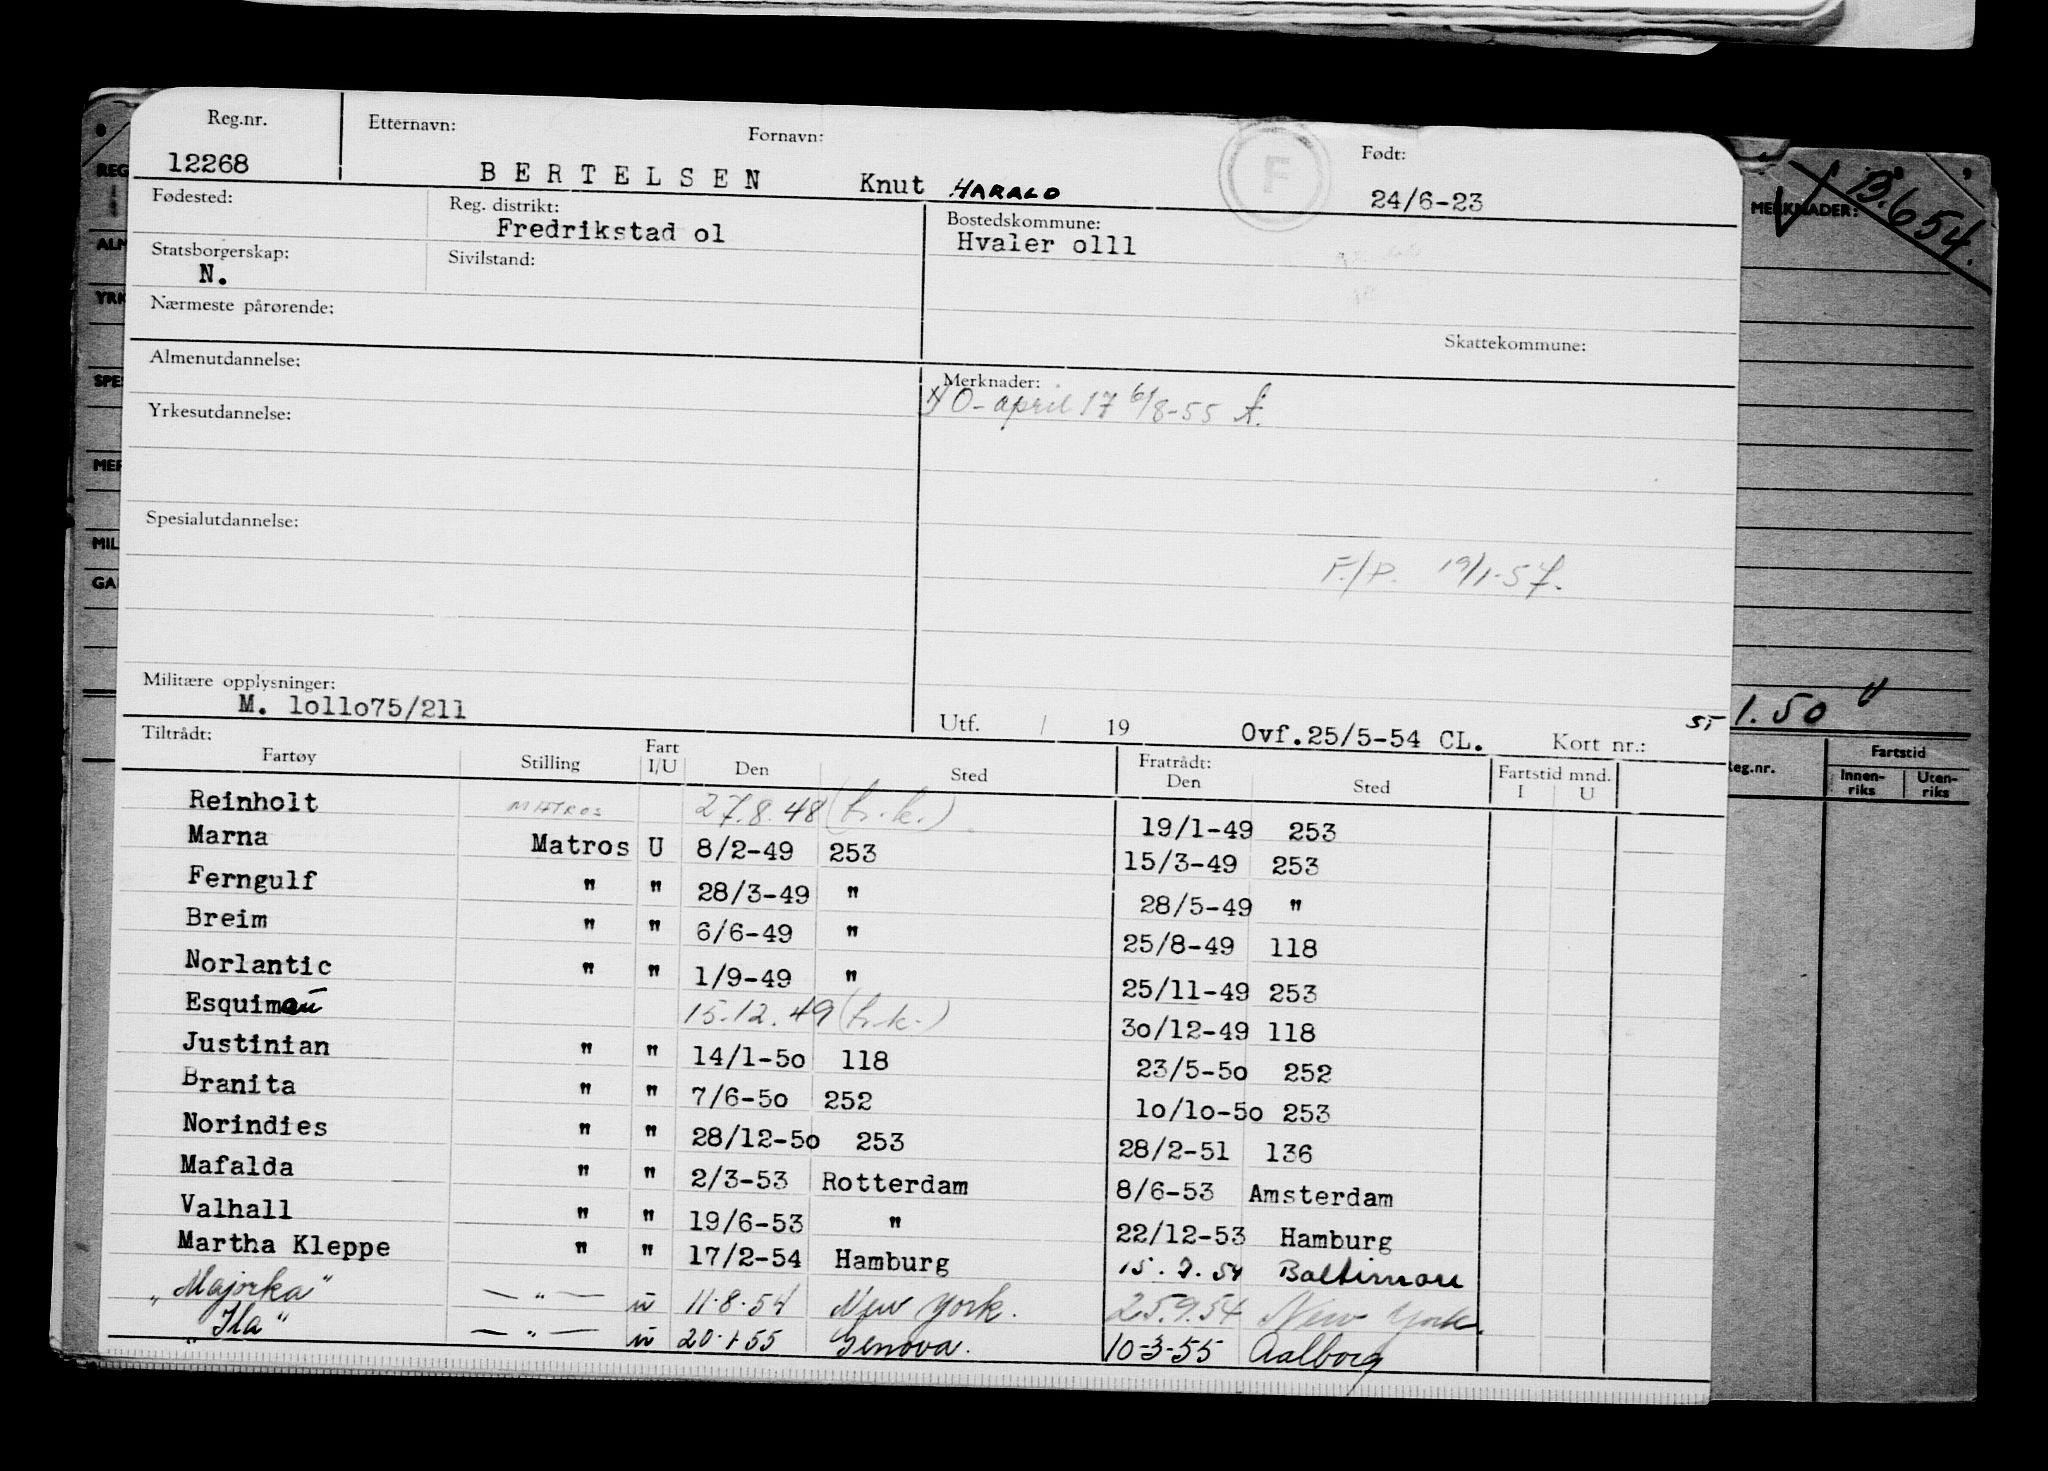 Reg.nr. Etternavn: Fornavn: Født:
12268 BERTELSEN Knut HARALD 24/6-23
F
Fødested: Reg. distrikt: Bostedskommune:
Fredrikstad o1 Hvaler o111
Statsborgerskap: Sivilstand:
N.
Nærmeste pårørende:
Skattekommune:
Almenutdannelse: Merknader:
O- april 17 6/8-55
Yrkesutdannelse:
Spesialutdannelse:
F./P. 19/1-57.
Militære opplysninger:
M. lo11o75/211
Utf. / 19 Ovf.25/5-54 CL. Kort nr.: ST
Tiltrådt: Fratrådt: Fartstid mnd.
Fartøy Stilling Fart I/U Den Sted Den Sted I U
Reinholt MATROS 27.8.48 (tr.k.) 19/1-49 253
Marna Matros U 8/2-49 253 15/3-49 253
Ferngulf " " 28/3-49 " 28/5-49 "
Breim " " 6/6-49 " 25/8-49 118
Norlantic " " 1/9-49 " 25/11-49 253
Esquimau 15.12.49 (tr.k.) 3o/12-49 118
Justinian " " 14/1-5o 118 23/5-5o 252
Branita " " 7/6-5o 252 1o/1o-5o 253
Norindies " " 28/12-5o 253 28/2-51 136
Mafalda " " 2/3-53 Rotterdam 8/6-53 Amsterdam
Valhall " " 19/6-53 " 22/12-53 Hamburg
Martha Kleppe " " 17/2-54 Hamburg 15.7.54 Baltimore
"Majorka" — " — u 11.8.54 New York. 25.9.54 New York.
"Ila" — " — u 20.1.55 Genova. 10-3-55 Aalborg
REG
ALM
YRK
SPES
MER
MIL
GA
MERKNADER: B.654.
1.50
Reg.nr. Fartstid
Innen-riks Uten-riks